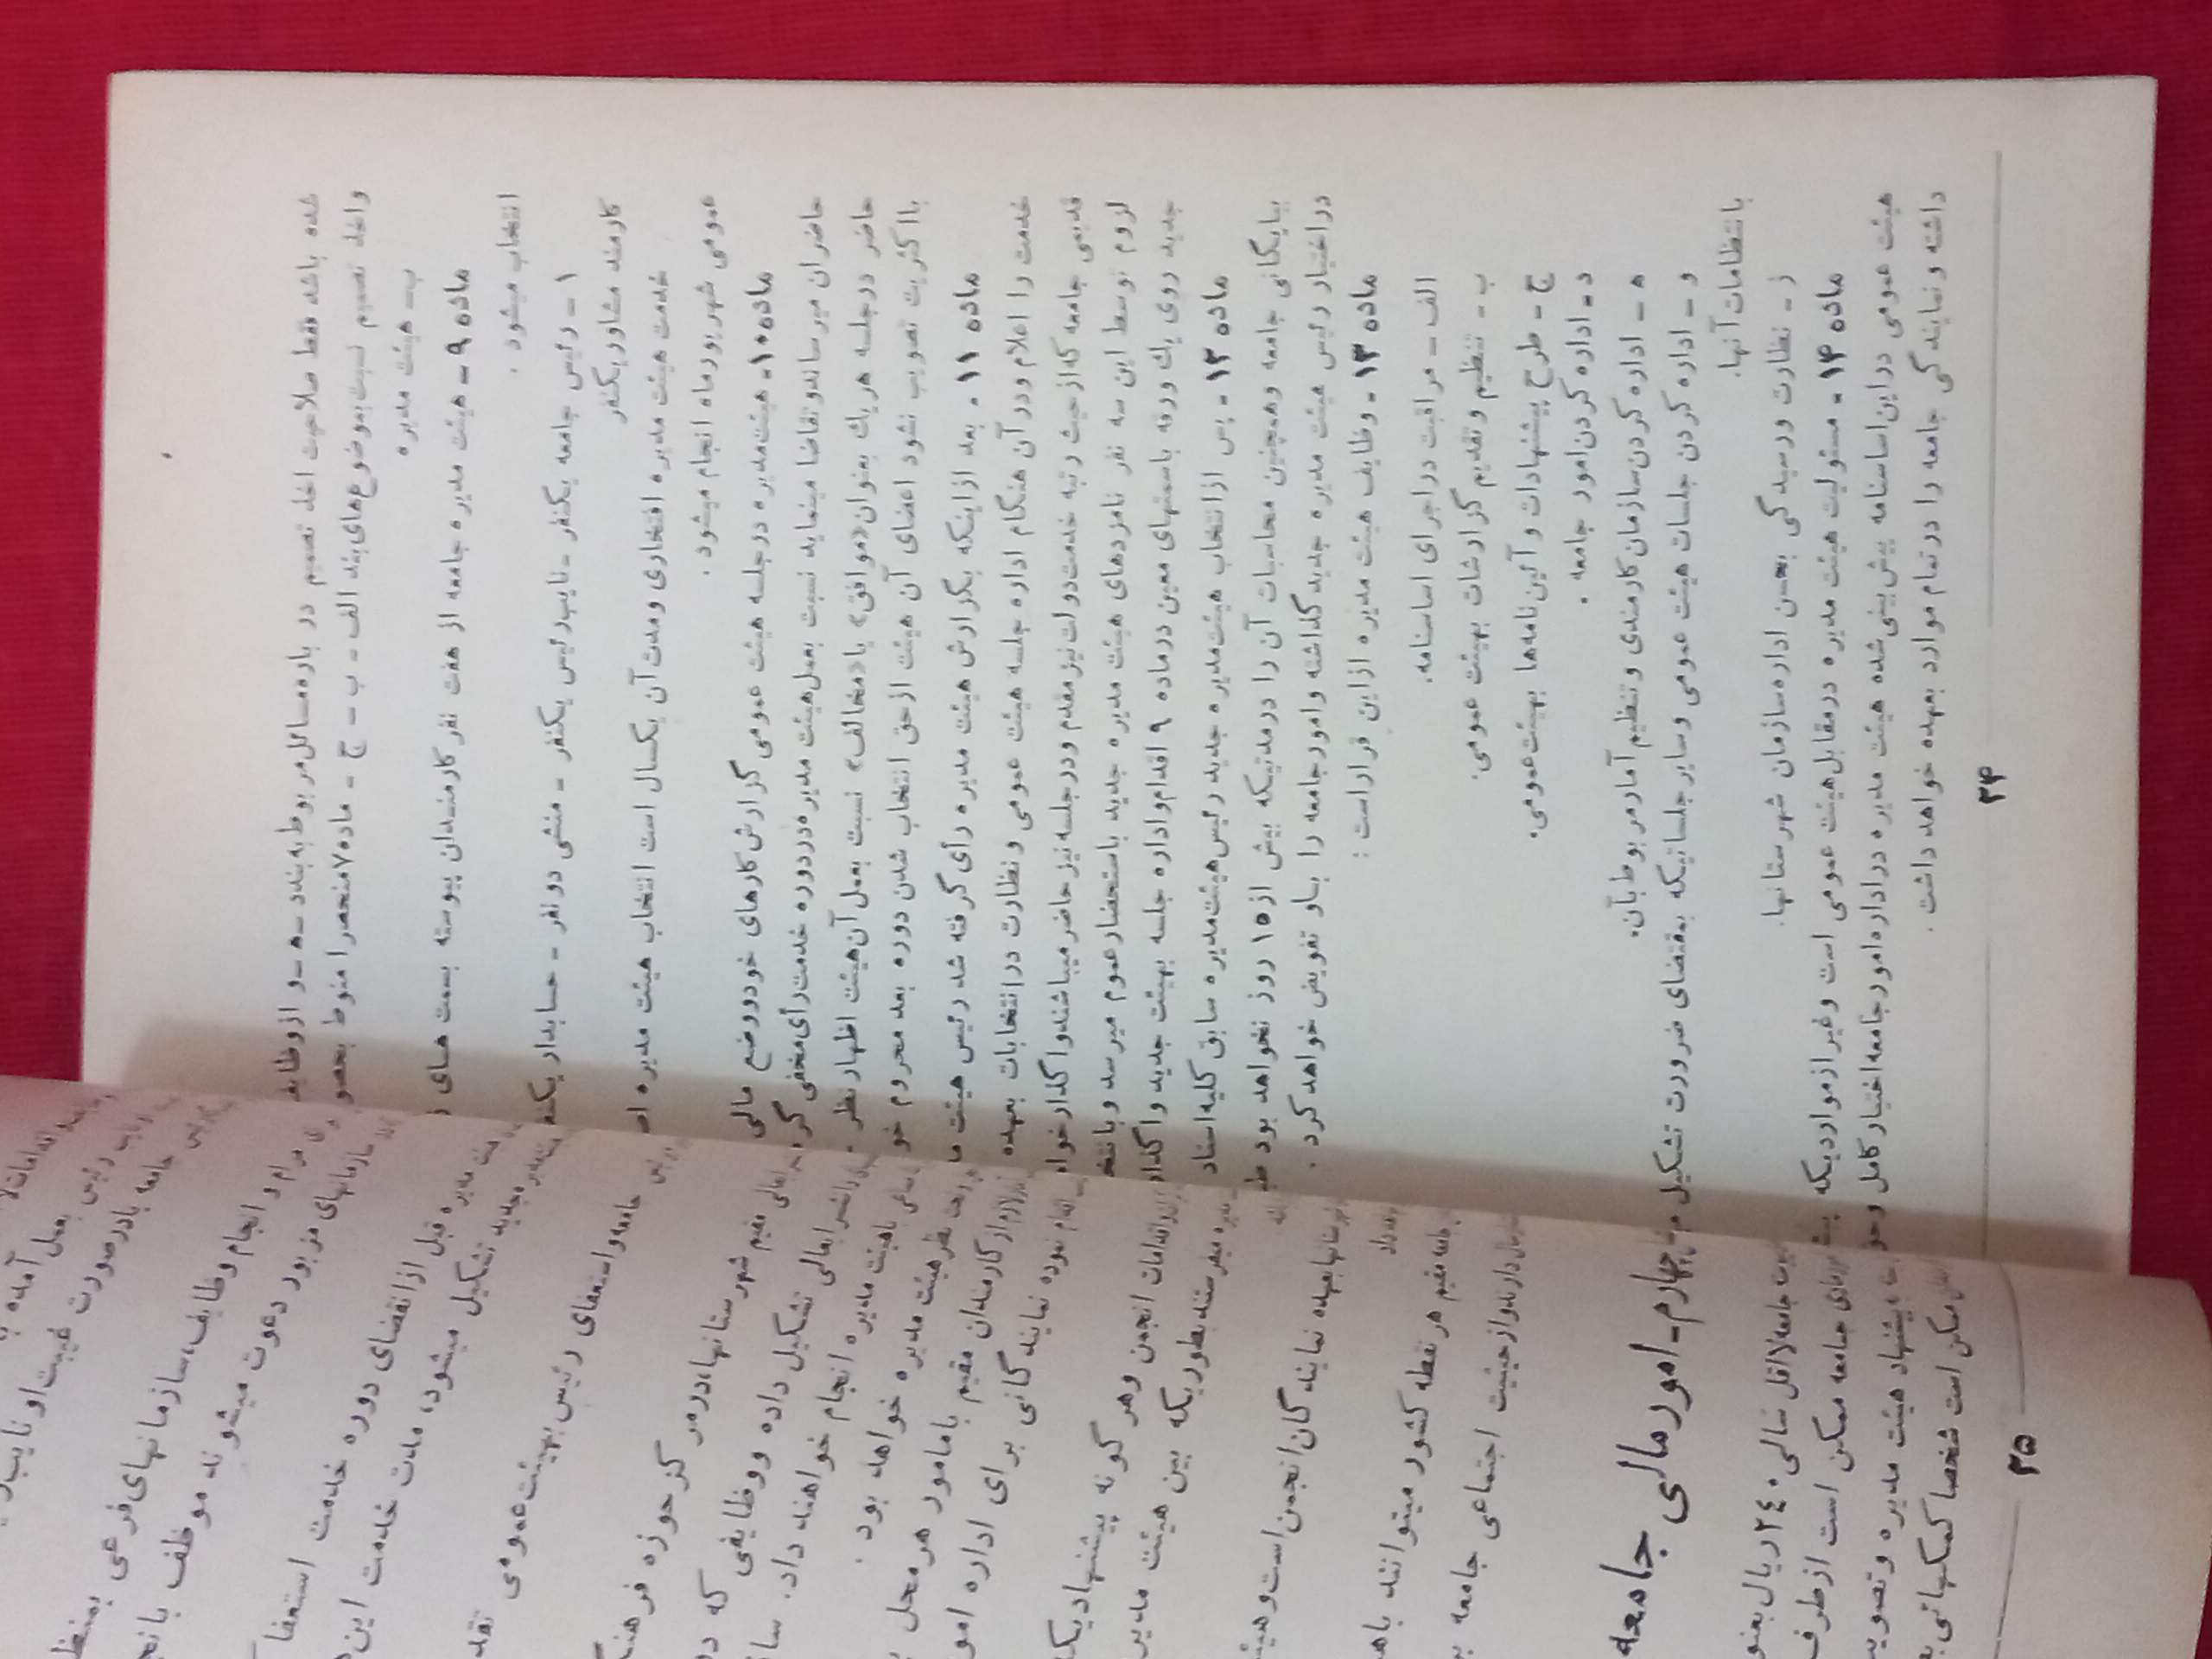 شده باشد فقط صلاحیت اخذ تصمیم در باره مسائل مربوط به بند د - ه - و از وظایف
واخذ تصمیم نسبت بموضوع‌های بند الف - ب - ج - ماده ۷ منحصرا منوط بحضو
ب - هیئت مدیره
ماده ۹ - هیئت مدیره جامعه از هفت نفر کارمندان پیوسته بسمت های
انتخاب میشود .
۱ - رئیس جامعه یکنفر - نایب رئیس یکنفر - منشی دو نفر - حسابدار یکنفر
کارمند مشاور یکنفر
خدمت هیئت مدیره افتخاری ومدت آن یکسال است انتخاب هیئت مدیره
عمومی شهریورماه انجام میشود .
ماده ۱۰ - هیئت مدیره در جلسه هیئت عمومی گزارش کارهای خود و وضع مالی
حاضران میرساند و تقاضا مینماید نسبت بعمل هیئت مدیره در دوره خدمت رأی مخفی
حاضر در جلسه هریك بعنوان «موافق» یا «مخالف» نسبت بعمل آن هیئت اظهار نظر
با اکثریت تصویب نشود اعضای آن هیئت از حق انتخاب شدن دوره بعد محروم
ماده ۱۱ - بعد از اینکه بگزارش هیئت مدیره رأی گرفته شد رئیس هیئت
خدمت را اعلام ودر آن هنگام اداره جلسه هیئت عمومی و نظارت در انتخابات بعهده
قدیمی جامعه که از حیث رتبه خدمت دولت نیز مقدم ودر جلسه نیز حاضر میباشند واگذار
لزوم توسط این سه نفر نامزدهای هیئت مدیره جدید باستحضار عموم میرسد و با
جدید روی یك ورقه باسمتهای معین در ماده ۹ اقدام و اداره جلسه بهیئت جدید واگذار
ماده ۱۲ - پس از انتخاب هیئت مدیره جدید رئیس هیئت مدیره سابق کلیه اسناد
بایگانی جامعه وهمچنین محاسبات آن را درمدتیکه بیش از ۱۵ روز نخواهد بود
دراختیار رئیس هیئت مدیره جدید گذاشته و امور جامعه را باو تفویض خواهد کرد .
ماده ۱۳ - وظایف هیئت مدیره از این قرار است :
الف - مراقبت در اجرای اساسنامه .
ب - تنظیم و تقدیم گزارشات بهیئت عمومی .
ج - طرح پیشنهادات و آئین نامه‌ها بهیئت عمومی .
د - اداره کردن امور جامعه .
ه - اداره کردن سازمان کارمندی و تنظیم آمار مربوط بآن .
و - اداره کردن جلسات هیئت عمومی وسایر جلساتیکه بمقتضای ضرورت تشکیل
با انتظامات آنها .
ز - نظارت ورسیدگی بحسن اداره سازمان شهرستانها .
ماده ۱۴ - مسئولیت هیئت مدیره درمقابل هیئت عمومی است وغیر از مواردیکه
هیئت عمومی دراین اساسنامه پیش‌بینی شده هیئت مدیره در اداره امور جامعه اختیار کامل
داشته و نمایندگی جامعه را درتمام موارد بعهده خواهد داشت .
۲۴
رئیس بعمل آمده
جامعه یا در صورت غیبت او نایب
مرام و انجام وظایف، سازمانهای فرعی بمنظ
سازمانهای مزبور دعوت میشوند موظف
قبل از انقضای دوره خدمت استعفا
تشکیل میشود، مدت خدمت این
جامعه و استعفای رئیس بهیئت عمومی
مقیم شهرستانها، درمر کز حوزه فرهنگ
تشکیل داده و وظایفی که
هیئت مدیره انجام خواهند داد .
نظر هیئت مدیره خواهد بود .
از کارمندان مقیم یا مامور هر محل
نموده نمایندگانی برای اداره امو
اقدامات انجمن وهر گونه پیشنهادیکه
میفرستند بطوریکه بین هیئت مدیر
شهرستانها بعهده نمایندگان انجمن است وهیئ
جامعه مقیم هر نقطه کشور میتوانند
دارند و از حیثیت اجتماعی جامعه
چهارم - امور مالی جامعه
جامعه لااقل سالی ۲۴۰ ریال بعنو
جامعه ممکن است از طرف
به پیشنهاد هیئت مدیره و تصویب
ممکن است شخصا کمکهائی
۲۵